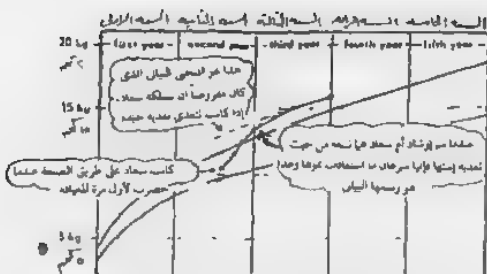 السنة الخامسة السنة الرابعة السنة الثالثة السنة الثانية السنة الأولى
20 kg first year second year third year fourth year fifth year
٢٠ كجم
هذا هو المنحنى البياني الذى
كان مفروضاً أن تسلكه سعاد
إذا كانت تتغذى تغذية جيدة
15 kg
١٥ كجم
عندما تم إرشاد أم سعاد من حيث
تغذية إبنتها فإنها سرعان ما استعادت نموها وهذا
هو رسمها البيانى
كانت سعاد على طريق الصحة عندما
حضرت لأول مرة للعيادة
5 kg
٥ كجم